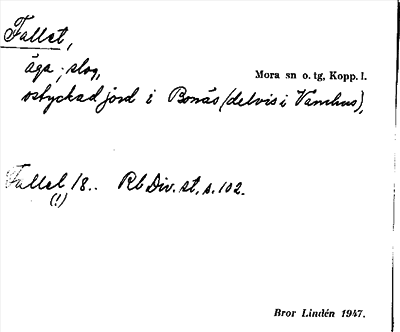 Fallet,
äga; slog,
Mora sn o. tg, Kopp. l.
ostyckad jord i Bonäs (delvis i Vamhus),
Fallet, 18.. Rb Div. st, s. 102.
(!)
Bror Lindén 1947.